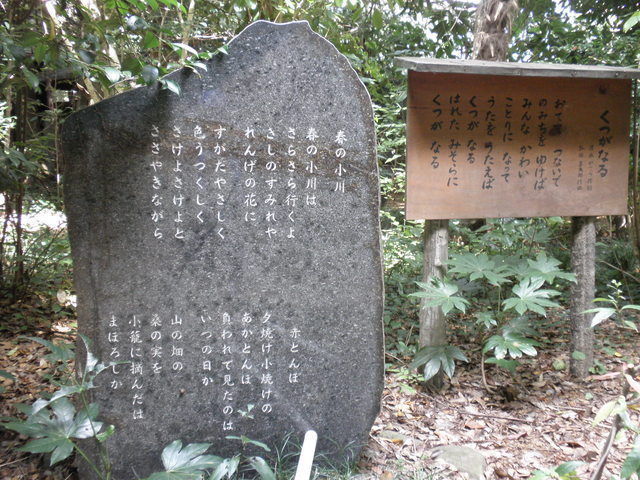 春の小川
春の小川は
さらさら行くよ
さしのすみれや
れんげの花に
すがたやさしく
色うつくしく
さけよさけよと
ささやきながら
赤とんぼ
夕焼け小焼けの
あかとんぼ
負われて見たのは
いつの日か
山の畑の
桑の実を
小籠に摘んだは
まぼろしか
くつがなる
おてゝ つないで
のみちを ゆけば
みんな かわい
ことりに なって
うたを うたえば
くつが なる
はれた みそらに
くつが なる